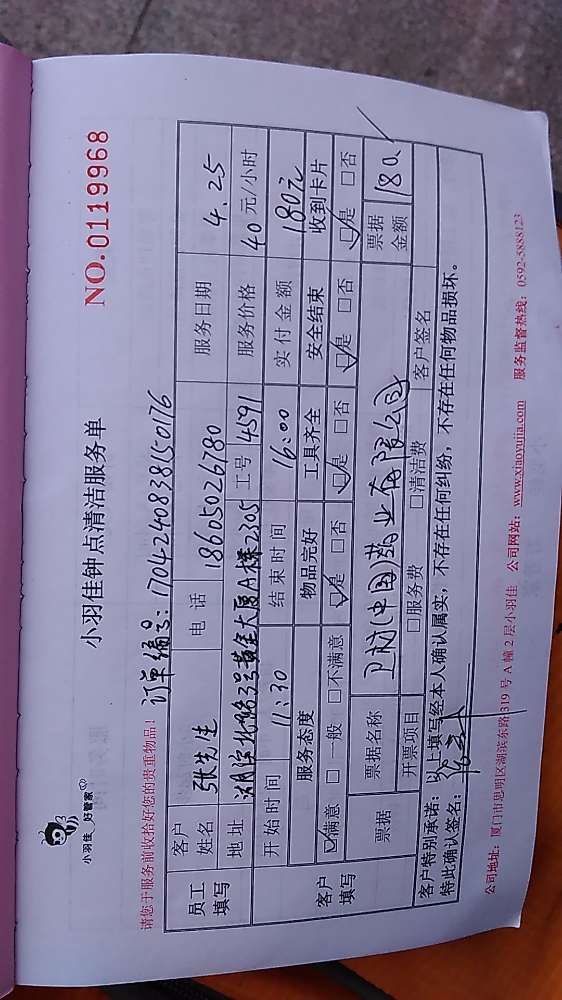 小羽佳 好管家
小羽佳钟点清洁服务单
NO.0119968
请您于服务前收拾好您的贵重物品!
订单编号:17042408381150176
员工填写
客户姓名 张先生 电话 18605026780 服务日期 4.25
地址 湖滨北路3号黄金大厦A栋2305 工号 4591 服务价格 40元/小时
开始时间 11:30 结束时间 16:00 实付金额 180元
客户填写
服务态度 物品完好 工具齐全 安全结束 收到卡片
☑满意 □一般 □不满意 ☑是 □否 ☑是 □否 ☑是 □否 ☑是 □否
票据 票据名称 卫材(中国)药业有限公司 票据金额 180.
开票项目 □服务费 □清洁费 客户签名
客户特别承诺:以上填写经本人确认属实,不存在任何纠纷,不存在任何物品损坏。
特此确认签名:
公司地址:厦门市思明区湖滨东路319号A幢2层小羽佳 公司网站:www.xiaoyujia.com 服务监督热线:0592-5888123